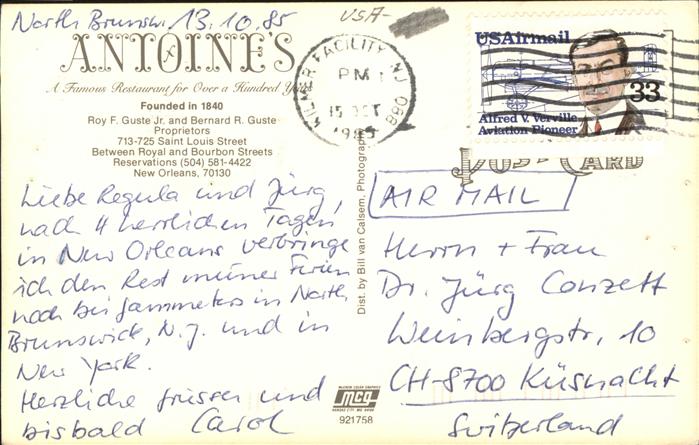 North Brunsw. 13.10.85
USA-
ANTOINE'S
A Famous Restaurant for Over a Hundred Years
Founded in 1840
Roy F. Guste Jr. and Bernard R. Guste
Proprietors
713-725 Saint Louis Street
Between Royal and Bourbon Streets
Reservations (504) 581-4422
New Orleans, 70130
Liebe Regula und Jürg,
nach 4 herrlichen Tagen
in New Orleans verbringe
ich den Rest meiner Ferien
noch bei Jammeters in North
Brunswick, N.J. und in
New York.
Herzliche Grüsse und
bis bald Carol
Dist. by Bill van Calsem, Photographer
KILMER FACILITY NJ 088
PM
15 OCT
1985
USAirmail
33
Alfred V. Verville
Aviation Pioneer
POST CARD
AIR MAIL
Herrn + Frau
Dr. Jürg Conzett
Weinbergstr. 10
CH-8700 Küsnacht
Switzerland
McGREW COLOR GRAPHICS
mcg
KANSAS CITY, MO. 64108
921758